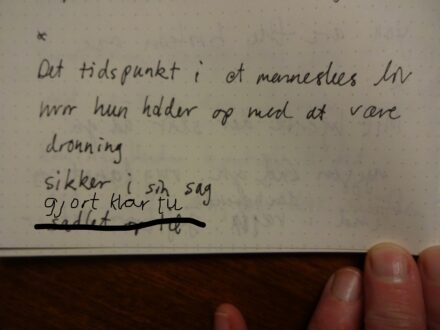 *
Det tidspunkt i et menneskes liv
hvor hun holder op med at være
dronning
sikker i sin sag
gjort klar til
sadlet op til